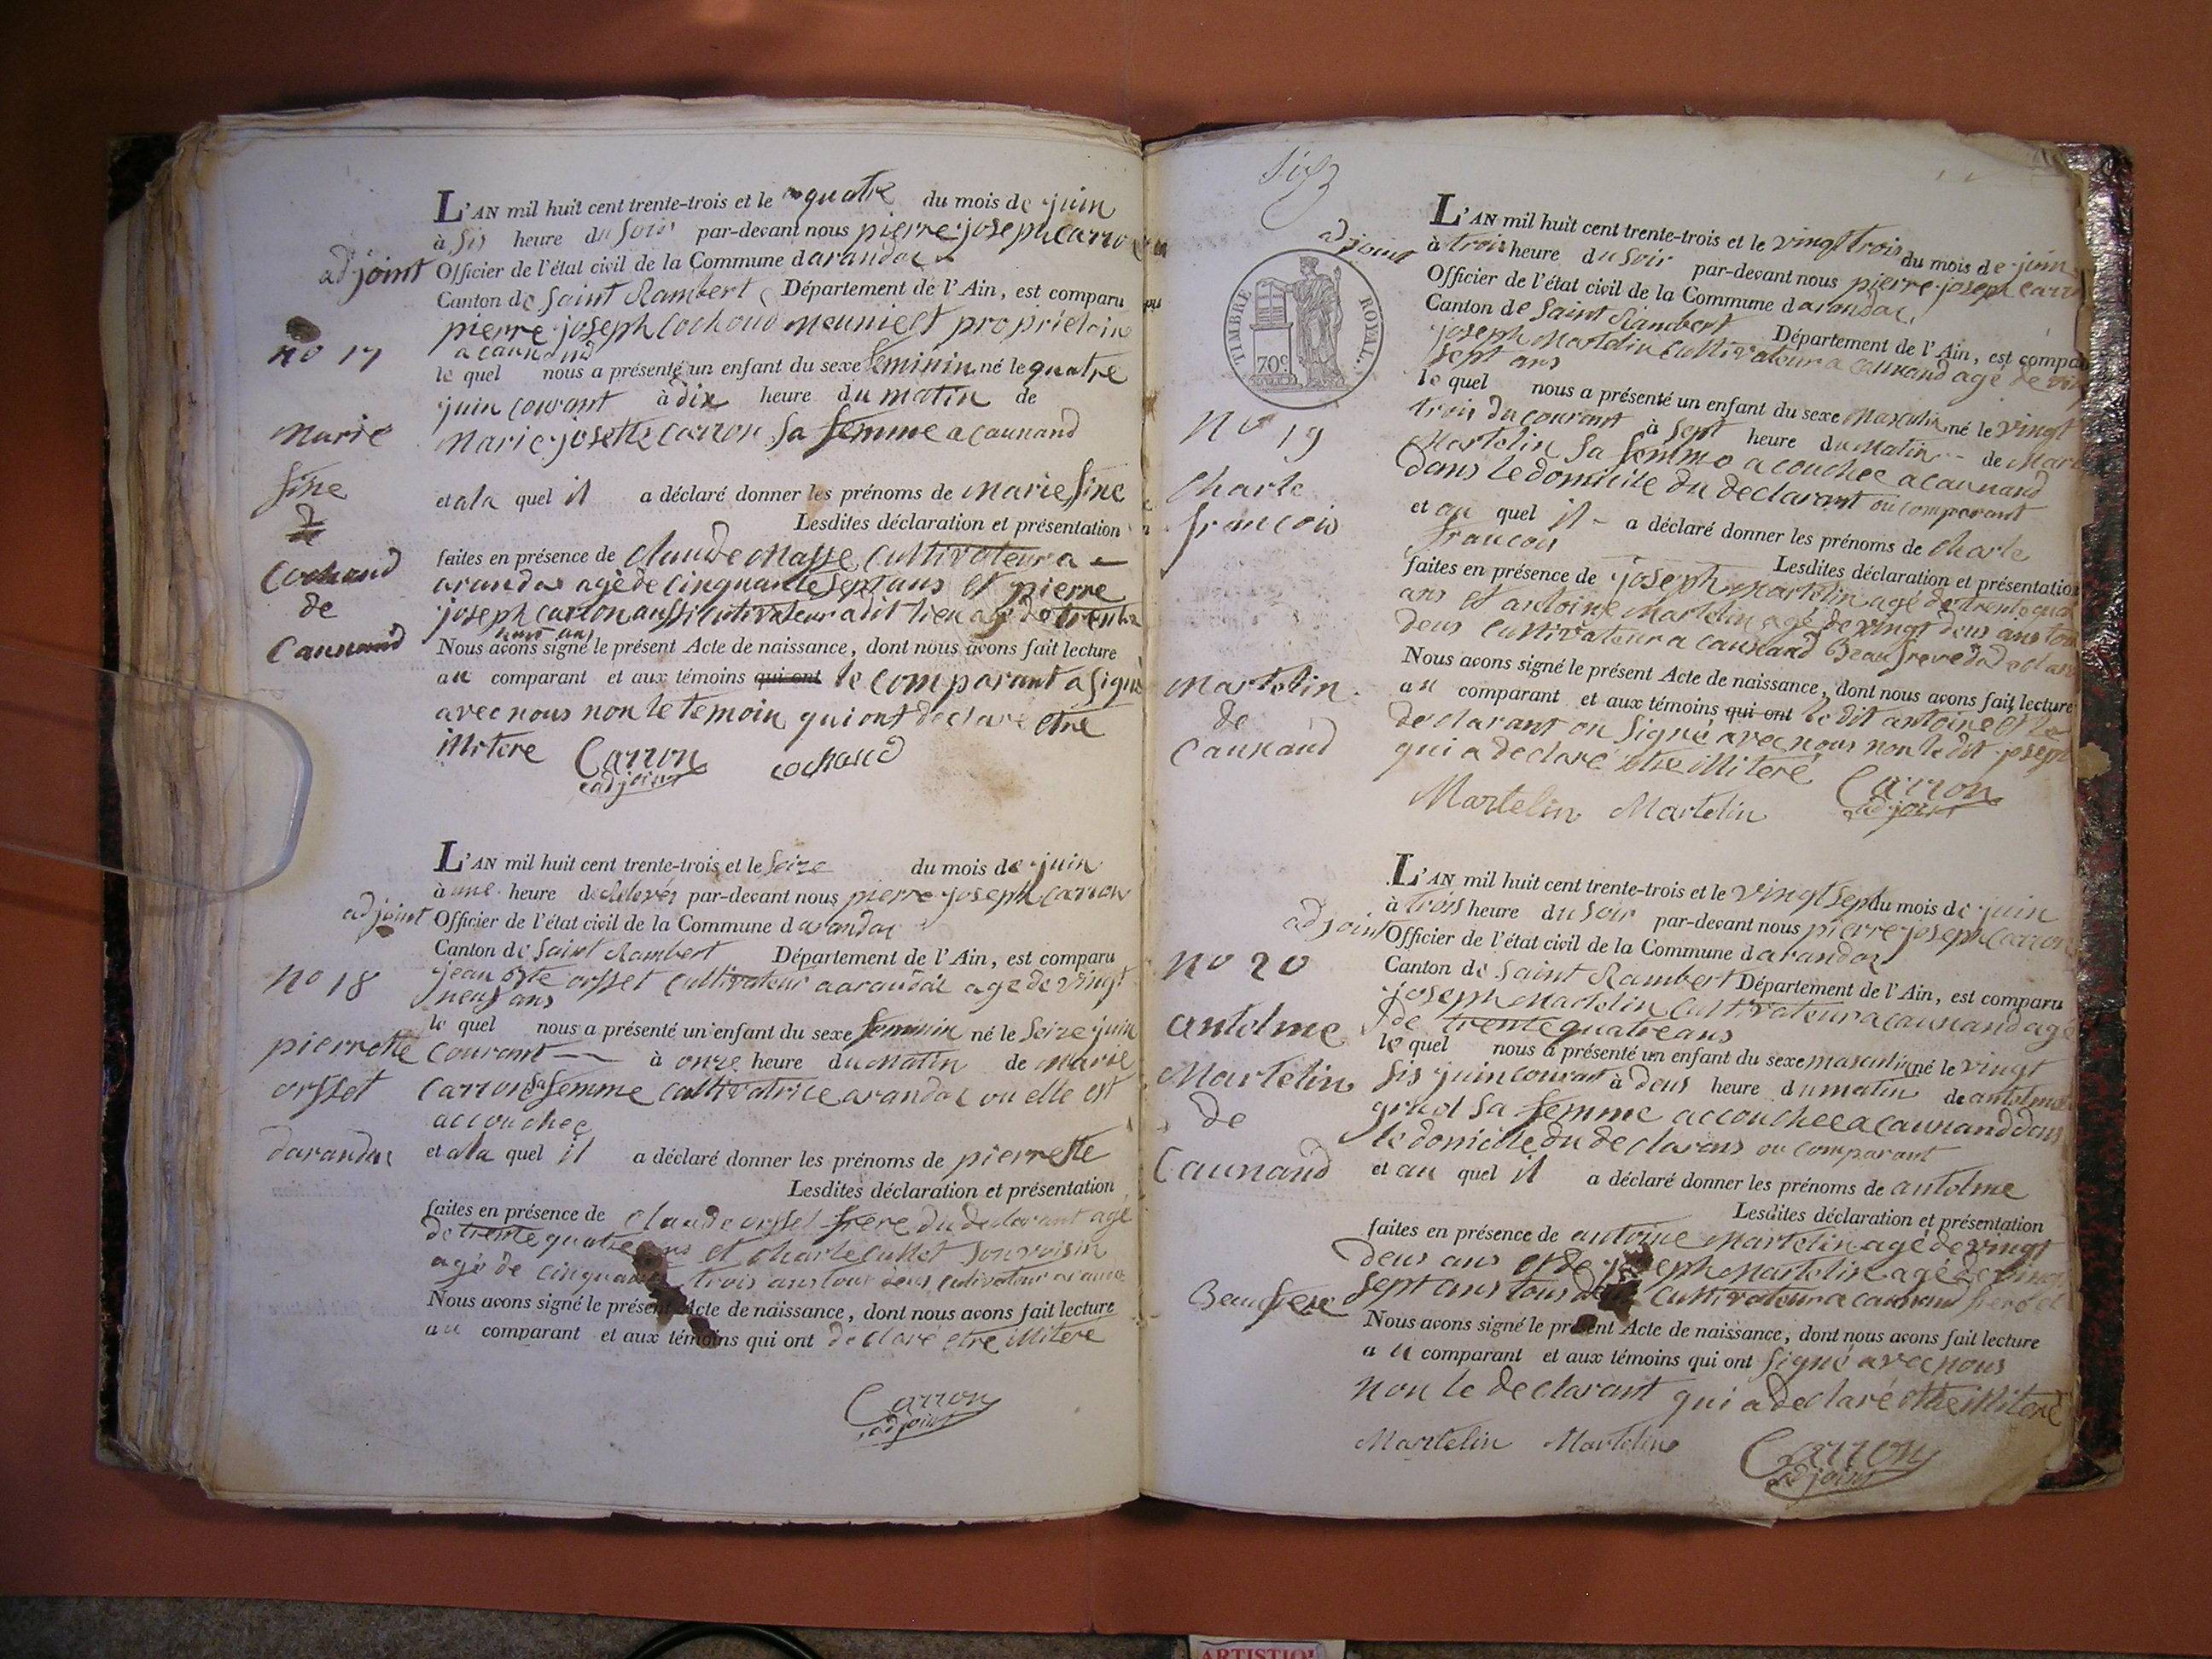 L'AN mil huit cent trente-trois et le quatre du mois de juin
à sis heure du soir par-devant nous pierre joseph Carron
adjoint Officier de l'état civil de la Commune darandas
Canton de Saint Rambert Département de l'Ain, est comparu
pierre joseph Cochoud meunier et proprietaire
a caunand
no 17
le quel nous a présenté un enfant du sexe feminin né le quatre
juin courant à dix heure du matin de
Marie josette Carron sa femme a caunand
Marie
fine
de
Cochaud
de
Caunand
et a la quel il a déclaré donner les prénoms de Marie fine
Lesdites déclaration et présentation
faites en présence de claude Masse Cultivateur a
arandas agé de cinquante sept ans et pierre
joseph carron aussi cultivateur a dit lieu agé de trente
Nous avons signé le présent Acte de naissance, dont nous avons fait lecture
au comparant et aux témoins qui ont le comparant a signé
avec nous non le temoin qui ont declare etre
illitere Carron cochaud
adjoint
L'AN mil huit cent trente-trois et le seize du mois de juin
à une heure par-devant nous pierre joseph carron
adjoint Officier de l'état civil de la Commune darandas
Canton de Saint Rambert Département de l'Ain, est comparu
no 18
jean bte orsset cultivateur a arandas age de vingt
neuf ans
le quel nous a présenté un enfant du sexe feminin né le seize juin
courant à onze heure du matin de Marie
Carron sa femme cultivatrice arandas ou elle est
accouchee
pierrette
orsset
darandas
et a la quel il a déclaré donner les prénoms de pierrette
Lesdites déclaration et présentation
faites en présence de claude orsset frere du declarant agé
de trente quatre ans et charle cullet son voisin
agé de cinquante trois ans tous deus cultivateur
Nous avons signé le présent Acte de naissance, dont nous avons fait lecture
au comparant et aux témoins qui ont declaré etre illitere
Carron
adjoint
L'AN mil huit cent trente-trois et le vingt trois du mois de juin
à trois heure du soir par-devant nous pierre joseph carron
adjoint
Officier de l'état civil de la Commune darandas
Canton de Saint Rambert Département de l'Ain, est comparu
TIMBRE ROYAL
70c
joseph Martelin Cultivateur a caunand agé de vingt
sept ans
le quel nous a présenté un enfant du sexe masculin né le vingt
trois du courant à sept heure du Matin de Marie
Martelin sa femme acouchee a caunand
dans le domicile du declarant ou comparant
no 19
Charle
francois
Martelin
de
Caunand
et au quel il a déclaré donner les prénoms de Charle
francois
Lesdites déclaration et présentation
faites en présence de joseph Martelin agé de trente quatre
ans et antoine Martelin agé de vingt deus ans tous
deus cultivateur a caunand Beau frere du declarant
Nous avons signé le présent Acte de naissance, dont nous avons fait lecture
au comparant et aux témoins qui ont le dit antoine et le
declarant on signé avec nous non le dit joseph
qui a declaré etre illiteré
Martelin Martelin Carron
adjoint
L'AN mil huit cent trente-trois et le vingt sept du mois de juin
à trois heure du soir par-devant nous pierre joseph Carron
adjoint Officier de l'état civil de la Commune darandas
Canton de Saint Rambert Département de l'Ain, est comparu
no 20
joseph Martelin cultivateur a caunand agé
de trente quatre ans
le quel nous a présenté un enfant du sexe masculin né le vingt
sis juin courant à deus heure du matin de antelmette
grust sa femme accouchee a caunand dans
le domicile du declarans ou comparant
antelme
Martelin
de
Caunand
et au quel il a déclaré donner les prénoms de antelme
Lesdites déclaration et présentation
faites en présence de antoine Martelin agé de vingt
deus ans et de joseph Martelin agé de vingt
sept ans tous deus cultivateur a caunand frere et
Beau frere
Nous avons signé le présent Acte de naissance, dont nous avons fait lecture
au comparant et aux témoins qui ont signé avec nous
non le declarant qui a declaré etre illiteré
Martelin Martelin Carron
adjoint